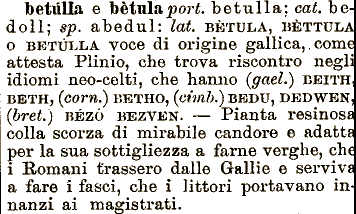 betúlla e bètula port. betulla; cat. be-
doll; sp. abedul: lat. BÈTULA, BÈTTULA
o BETÚLLA voce di origine gallica, come
attesta Plinio, che trova riscontro negli
idiomi neo-celti, che hanno (gael.) BEITH,
BETH, (corn.) BETHO, (cimb.) BEDU, DEDWEN,
(bret.) BÉZÒ BEZVEN. — Pianta resinosa
colla scorza di mirabile candore e adatta
per la sua sottigliezza a farne verghe, che
i Romani trassero dalle Gallie e serviva
a fare i fasci, che i littori portavano in-
nanzi ai magistrati.